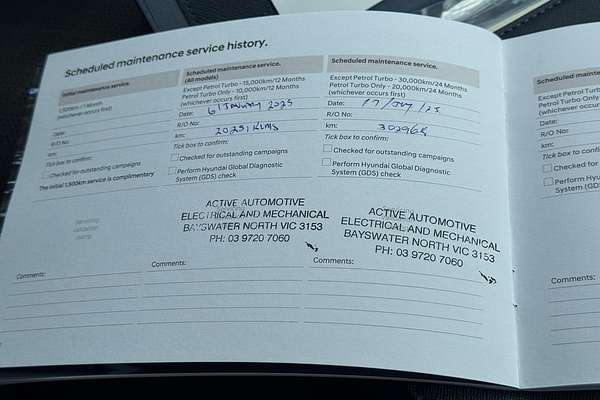 Scheduled maintenance service history.
Initial maintenance service.
1,500km / 1 Month
(whichever occurs first)
Date:
R/O No:
km:
Tick box to confirm:
Checked for outstanding campaigns
The initial 1,500km service is complimentary
Servicing
validation
stamp
Comments:
Scheduled maintenance service.
(All models)
Except Petrol Turbo - 15,000km/12 Months
Petrol Turbo Only - 10,000km/12 Months
(whichever occurs first)
Date: 6/January 2025
R/O No:
km: 20251 kms
Tick box to confirm:
Checked for outstanding campaigns
Perform Hyundai Global Diagnostic
System (GDS) check
ACTIVE AUTOMOTIVE
ELECTRICAL AND MECHANICAL
BAYSWATER NORTH VIC 3153
PH: 03 9720 7060
Comments:
Scheduled maintenance service.
Except Petrol Turbo - 30,000km/24 Months
Petrol Turbo Only - 20,000km/24 Months
(whichever occurs first)
Date:
R/O No:
km:
Tick box to confirm:
Checked for outstanding campaigns
Perform Hyundai Global Diagnostic
System (GDS) check
ACTIVE AUTOMOTIVE
ELECTRICAL AND MECHANICAL
BAYSWATER NORTH VIC 3153
PH: 03 9720 7060
Comments:
Scheduled
Except Petrol
Petrol Turbo
(whichever
Date:
R/O No:
km:
Tick box to confirm:
Checked for
Perform Hy
System (GD
Comments: